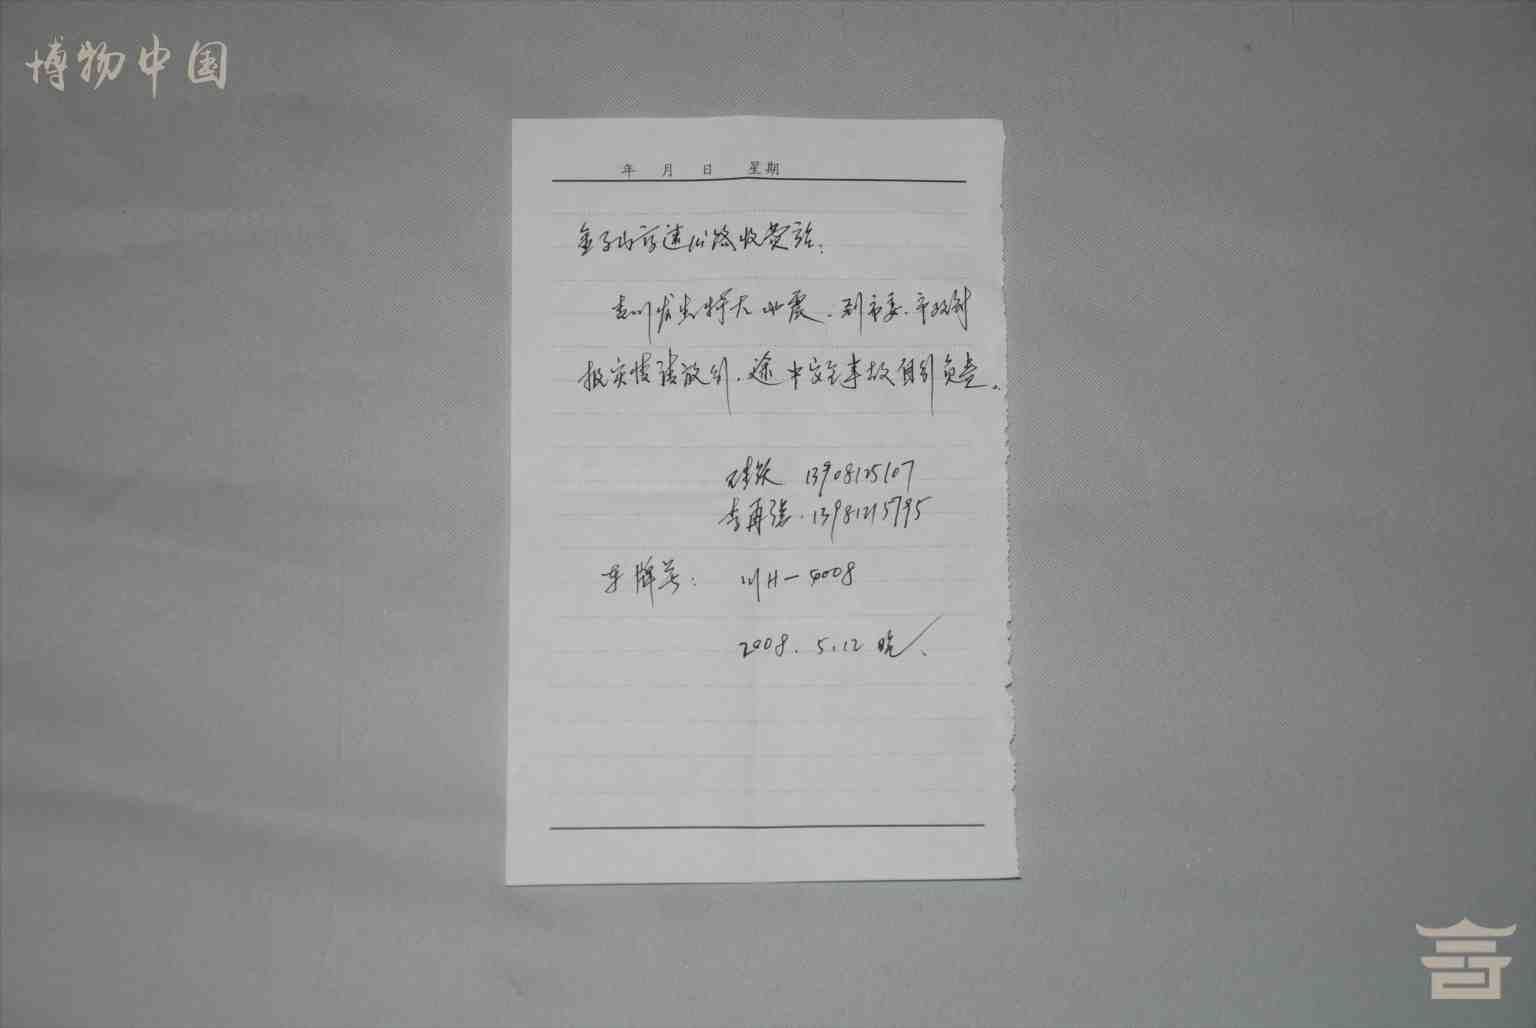 博物中国
年 月 日 星期
金子山高速公路收费站:
青川发生特大地震,到市委、市政府
报灾情请放行,途中安全事故自行负责。
13908125107
李再强. 13981215795
车牌号: 川H-50008
2008. 5.12 晚、